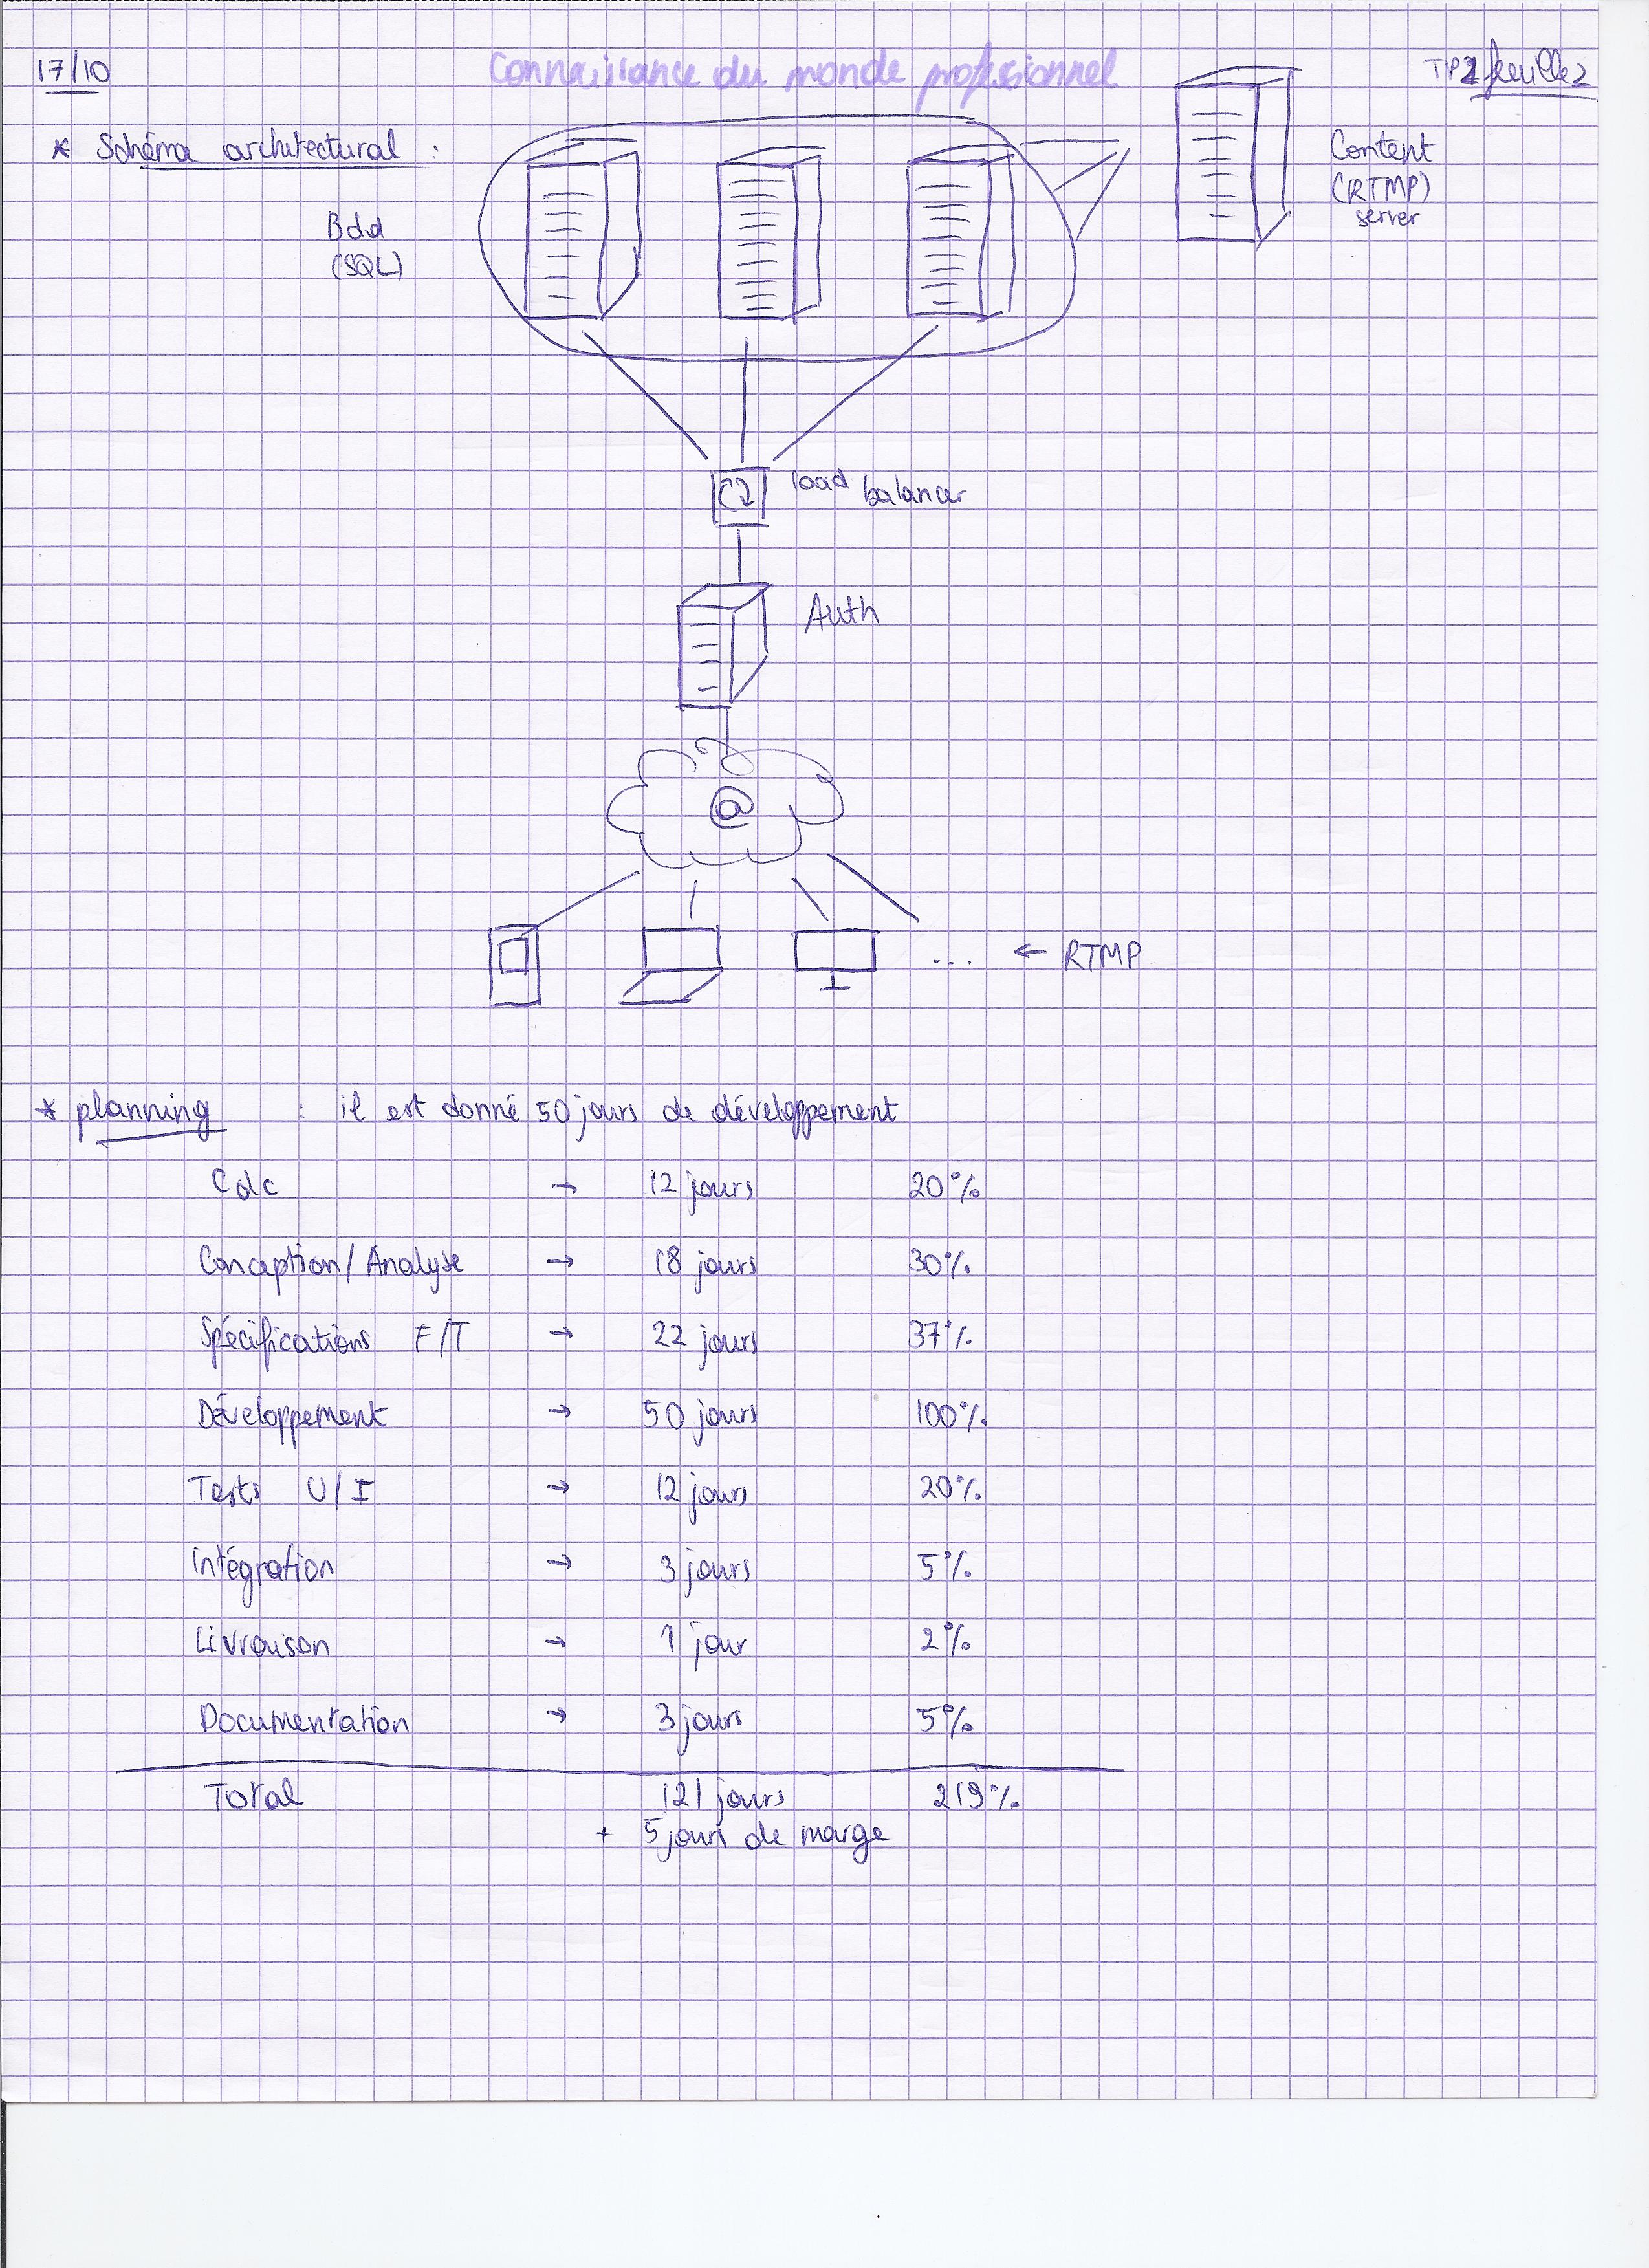 17/10
Connaissance du monde professionnel
TP2 feuille 2
* Schéma architectural :
Bdd
(SQL)
Content
(RTMP)
server
load balancer
Auth
@
... ← RTMP
* planning : il est donné 50 jours de développement
Cdc → 12 jours 20%
Conception/Analyse → 18 jours 30%
Spécifications F/T → 22 jours 37%
Développement → 50 jours 100%
Tests U/I → 12 jours 20%
intégration → 3 jours 5%
Livraison → 1 jour 2%
Documentation → 3 jours 5%
Total 121 jours 219%
+ 5 jours de marge